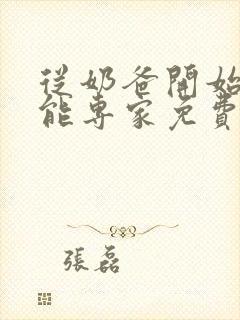 從奶爸開始
能專家免費
張磊